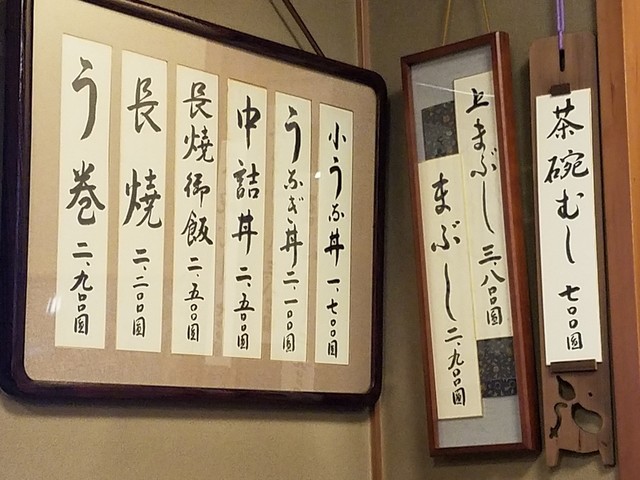 茶碗むし 七〇〇圓
上まぶし 三、八〇〇圓
まぶし 二、九〇〇圓
小うな丼 一、七〇〇圓
うなぎ丼 二、一〇〇圓
中詰丼 二、五〇〇圓
長焼御飯 二、五〇〇圓
長焼 二、二〇〇圓
う巻 二、九〇〇圓